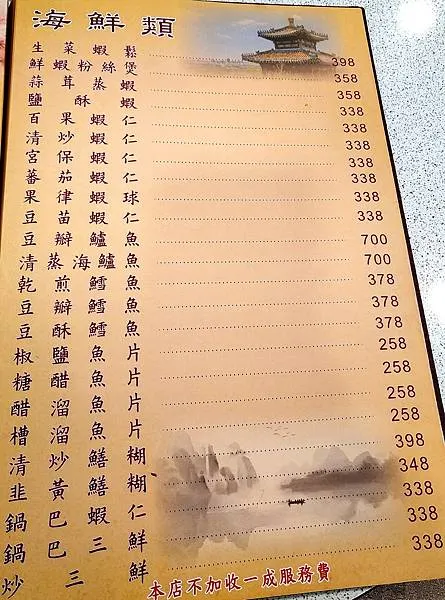 海鮮類
生菜蝦鬆 398
鮮蝦粉絲煲 358
蒜茸蒸蝦 358
鹽酥蝦 338
百果蝦仁 338
清炒蝦仁 338
宮保蝦仁 338
蕃茄蝦仁 338
果律蝦球 338
豆苗蝦仁 338
豆瓣鱸魚 700
清蒸海鱸魚 700
乾煎鱈魚 378
豆瓣鱈魚 378
豆酥鱈魚 378
椒鹽魚片 258
糖醋魚片 258
醋溜魚片 258
槽溜魚片 258
清炒鱔糊 398
韭黃鱔糊 348
鍋巴蝦仁 338
鍋巴三鮮 338
炒三鮮 338
本店不加收一成服務費